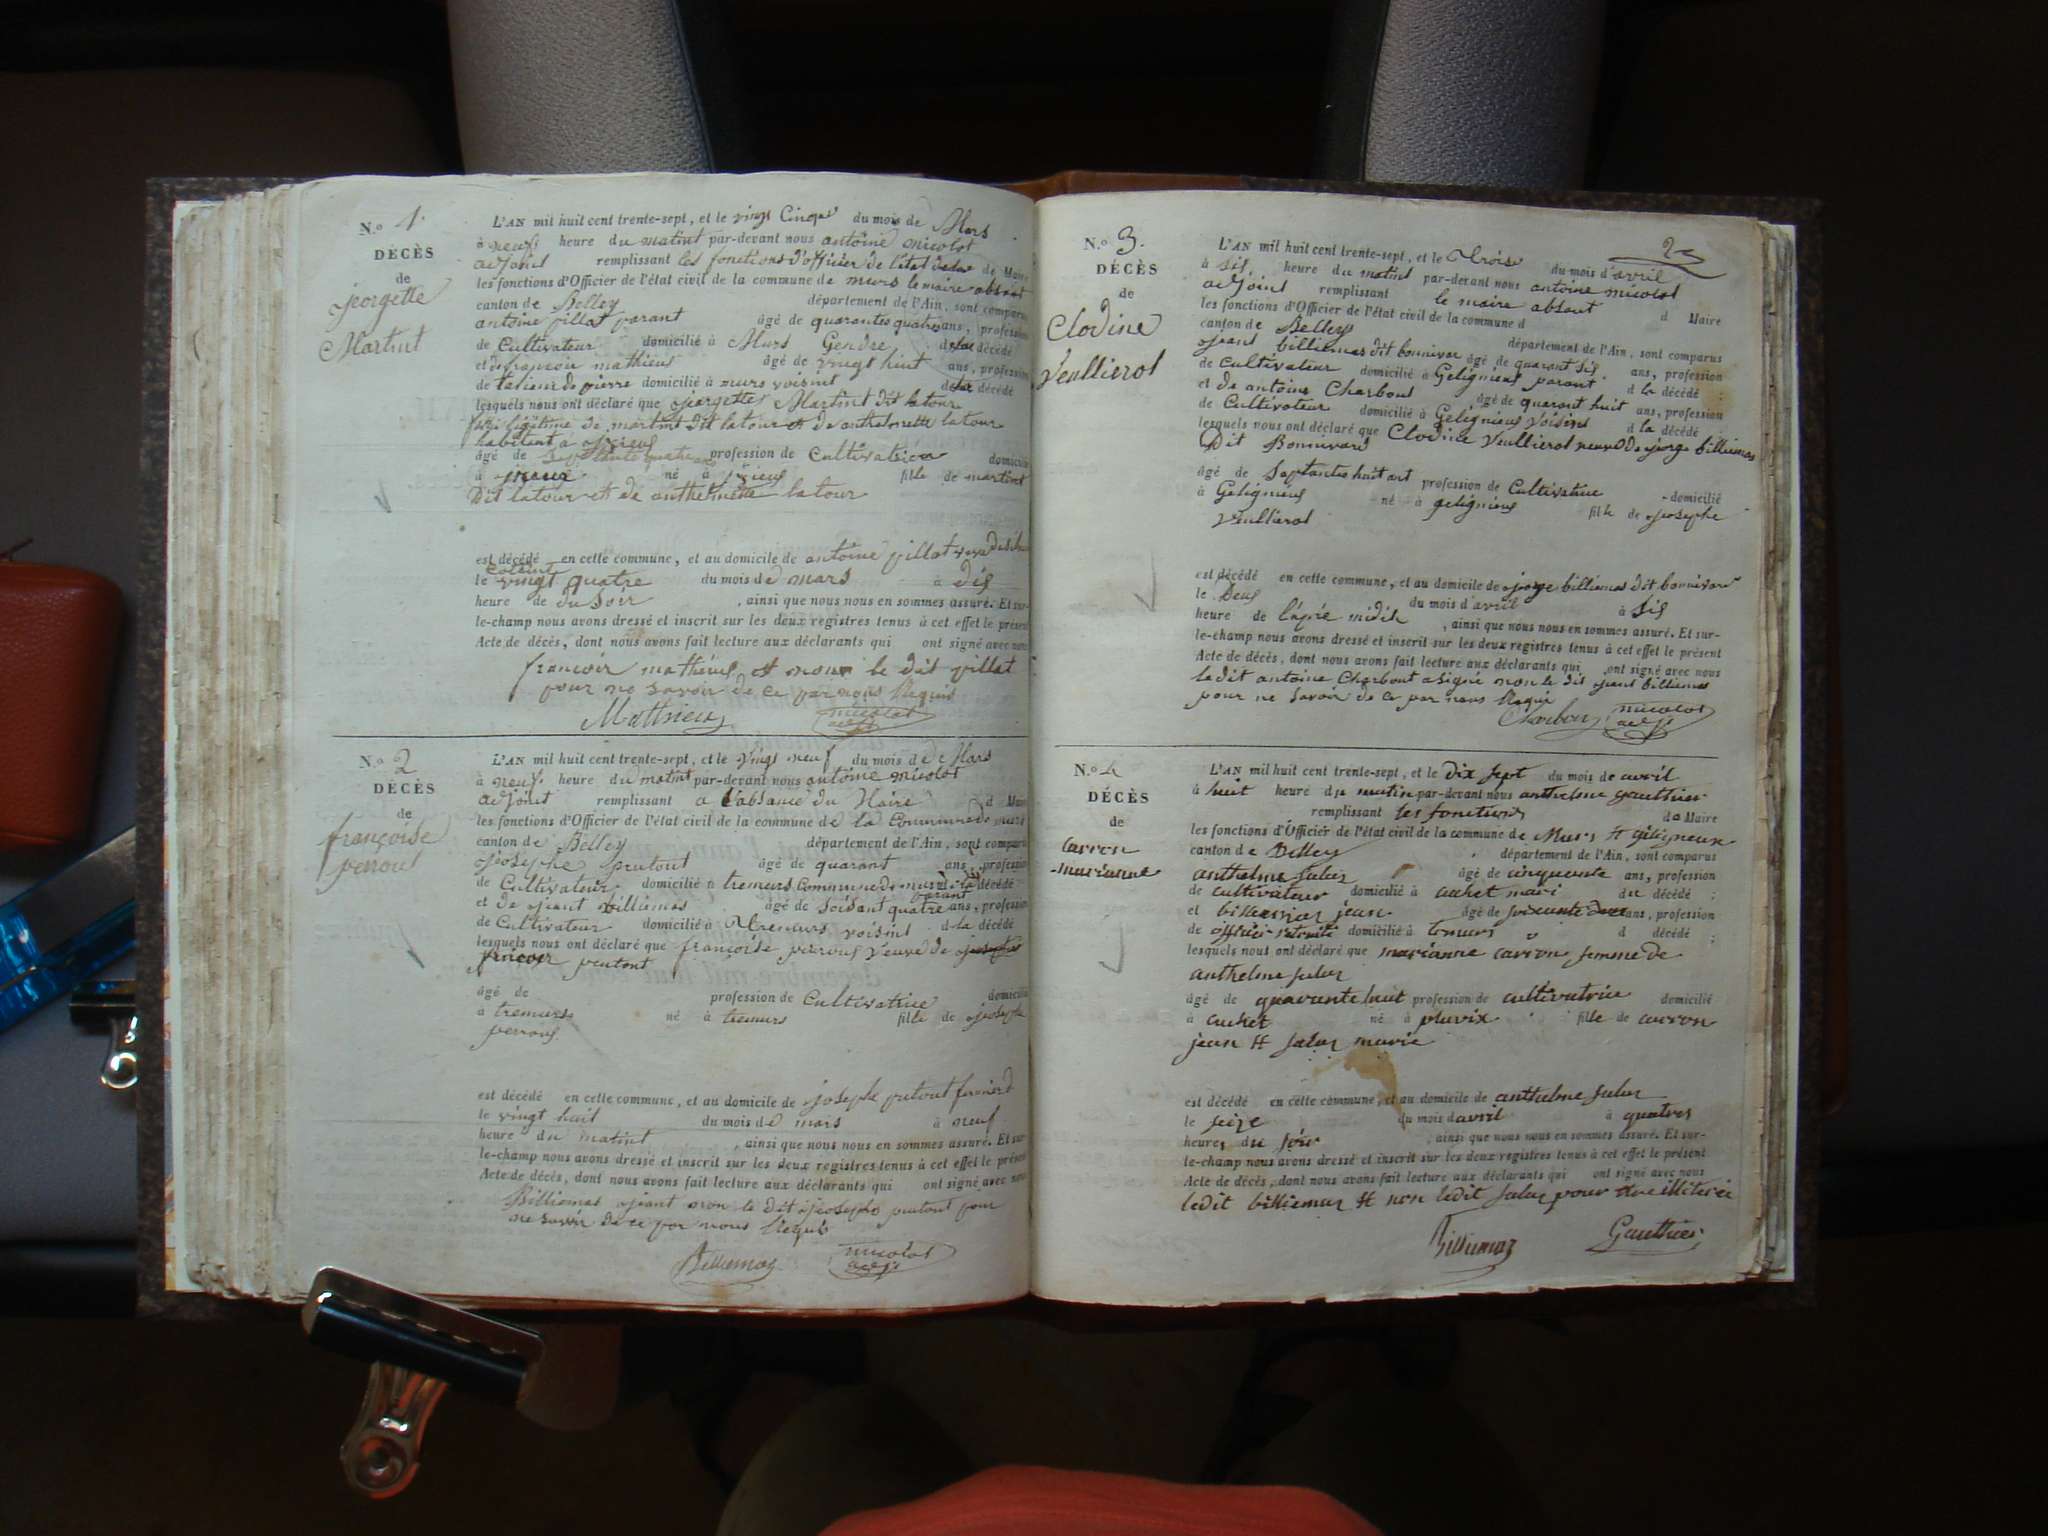 N.o 1.
DÉCÈS
de
jeorgette
Martint
L'AN mil huit cent trente-sept, et le vingt Cinque du mois de Mars
à neuf heure du matint par-devant nous antoine micolot
adjoint remplissant les fonctions d'officier de l'état de Maire
les fonctions d'Officier de l'état civil de la commune de murs le maire absant
canton de Belley département de l'Ain, sont comparus
antoine pillat parant âgé de quarantes quatre ans, profession
de Cultivateur domicilié à Murs Gendre de la décédé
et de francoir mathieus âgé de vingt huit ans, profession
de tailieur de pierre domicilié à murs voisint de la décédé
lesquels nous ont déclaré que jeorgette Martint dit latour
légitime de martint dit latour et de anthelmette latour
habitent a
âgé de profession de Cultivatrice domicilié
à né à fille de martint
Dit latour et de anthelmette latour
est décédé en cette commune, et au domicile de antoine pillat
le vingt quatre du mois de mars à dis
heure de du Soir , ainsi que nous nous en sommes assuré. Et sur-
le-champ nous avons dressé et inscrit sur les deux registres tenus à cet effet le présent
Acte de décès, dont nous avons fait lecture aux déclarants qui ont signé avec nous
francoir mathieus et nonr le dit pillat
pour ne savoir de ce par nous Requis
Mathieux micolot adjt
N.o 2
DÉCÈS
de
françoise
perrout
L'AN mil huit cent trente-sept, et le vingt neuf du mois de de Mars
à neuf heure du matint par-devant nous antoine micolot
adjoint remplissant a l'absance du Maire d Maire
les fonctions d'Officier de l'état civil de la commune de la Commune de murs
canton de Belley département de l'Ain, sont comparus
josephe prutout âgé de quarant ans, profession
de Cultivateur domicilié à tremurs Commune de murs parant de la décédé
et de ojeant billiemas âgé de soisant quatre ans, profession
de Cultivateur domicilié à tremurs voisint d la décédé
lesquels nous ont déclaré que françoise perrout veuve de
francoir prutout
âgé de profession de Cultivatrice domicilié
à tremurs né à tremurs fille de joseph
perrout
est décédé en cette commune, et au domicile de joseph prutout
le vingt huit du mois de mars à neuf
heure du matint , ainsi que nous nous en sommes assuré. Et sur-
le-champ nous avons dressé et inscrit sur les deux registres tenus à cet effet le présent
Acte de décès, dont nous avons fait lecture aux déclarants qui ont signé avec nous
Billiemas ojeant non le dit joseph prutout pour
ne savoir de ce par nous Requis
Billiemaz micolot adjt
N.o 3.
DÉCÈS
de
Clodine
Veullierot
L'AN mil huit cent trente-sept, et le Trois du mois d'avril
à sis heure du matint par-devant nous antoine micolot
adjoint remplissant le maire absant d Maire
les fonctions d'Officier de l'état civil de la commune d
canton de Belley département de l'Ain, sont comparus
ojeant billiemas dit bonnivar âgé de quarant sis ans, profession
de Cultivateur domicilié à Gelignieus parant d la décédé ;
et de antoine Charbout âgé de quarant huit ans, profession
de Cultivateur domicilié à Geligniens voisint d la décédé ;
lesquels nous ont déclaré que Clodine Veullierot neuve de jeorge billiemas
Dit Bonnivard
âgé de Septantes huit ant profession de Cultivatrice domicilié
à Geligniens né à geligniens fille de josephe
Veullierot
est décédé en cette commune, et au domicile de jeorge billiemas dit bonnivar
le Deus du mois d'avril à sis
heure de l'après midih , ainsi que nous nous en sommes assuré. Et sur-
le-champ nous avons dressé et inscrit sur les deux registres tenus à cet effet le présent
Acte de décès, dont nous avons fait lecture aux déclarants qui ont signé avec nous
le dit antoine Charbout a signé non le dit ojeant billiemas
pour ne savoir de ce par nous Requi
Charbon micolot adjt
N.o 4
DÉCÈS
de
carron
marianne
L'AN mil huit cent trente-sept, et le dix sept du mois de avril
à huit heure du matin par-devant nous anthelme gauthier
remplissant les fonctions de Maire
les fonctions d'Officier de l'état civil de la commune de Murs et géligneux
canton de Belley département de l'Ain, sont comparus
anthelme âgé de cinquante ans, profession
de cultivateur domicilié à cuchet mari du décédé ;
et billiemaz jean âgé de soixante ans, profession
de officier retraité domicilié à tremurs d décédé ;
lesquels nous ont déclaré que marianne carron femme de
anthelme
âgé de quarante huit profession de cultivatrice domicilié
à cuchet né à fille de carron
jean et marie
est décédé en cette commune, et au domicile de anthelme
le seize du mois d avril à quatres
heures du soir , ainsi que nous nous en sommes assuré. Et sur-
le-champ nous avons dressé et inscrit sur les deux registres tenus à cet effet le présent
Acte de décès, dont nous avons fait lecture aux déclarants qui ont signé avec nous
ledit billiemaz et non ledit pour être illitéré
Billiemaz Gauthier